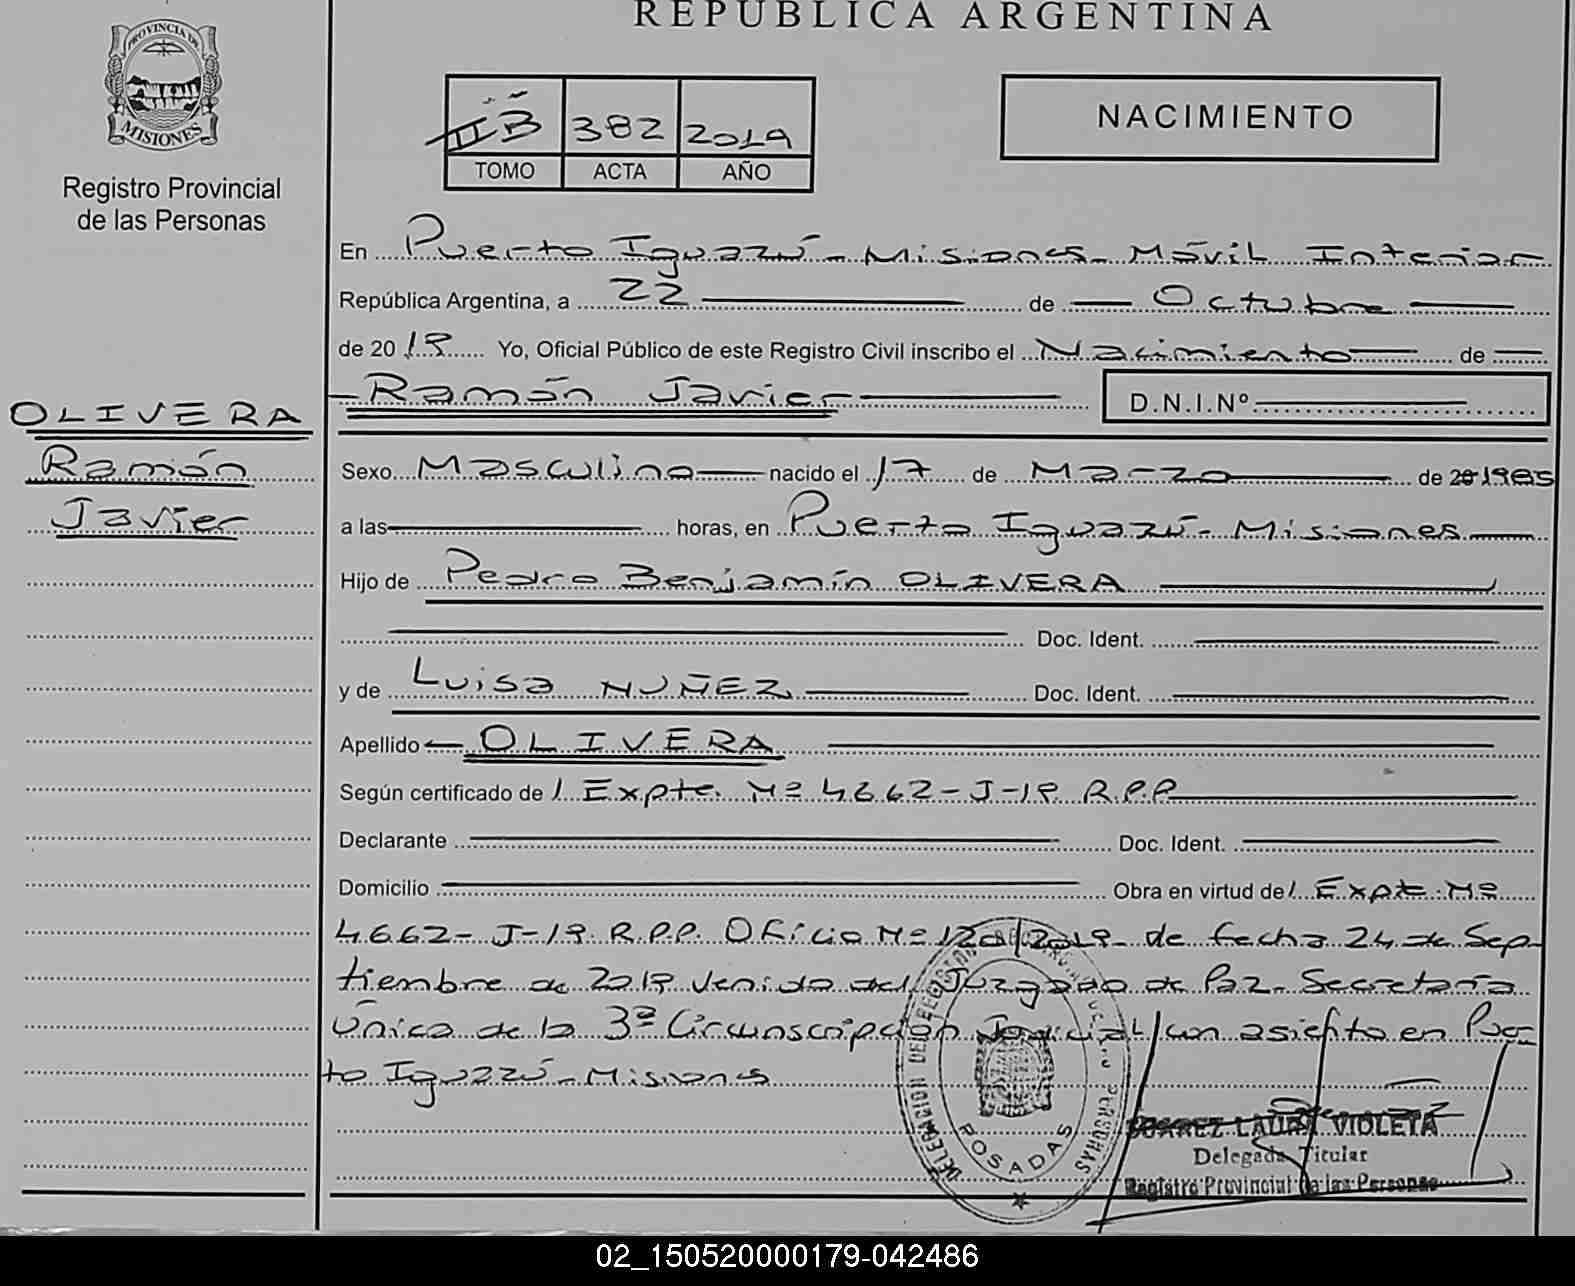 REPÚBLICA ARGENTINA
PROVINCIA DE
MISIONES
Registro Provincial
de las Personas
II B 382 2019
TOMO ACTA AÑO
NACIMIENTO
En Puerto Iguazú - Misiones - Móvil Interior
República Argentina, a 22 de Octubre
de 2019 Yo, Oficial Público de este Registro Civil inscribo el Nacimiento de
Ramón Javier D.N.I.Nº
OLIVERA
Ramón
Javier
Sexo Masculino nacido el 17 de Marzo de 1985
a las horas, en Puerto Iguazú - Misiones
Hijo de Pedro Benjamín OLIVERA
Doc. Ident.
y de Luisa NUÑEZ Doc. Ident.
Apellido OLIVERA
Según certificado de / Expte. Nº 4662-J-19 R.P.P
Declarante Doc. Ident.
Domicilio Obra en virtud de / Expte. Nº
4662-J-19. R.P.P. Oficio Nº 120/2019 de fecha 24 de Sep-
tiembre de 2019 venido del Juzgado de Paz - Secretaría
Única de la 3ª Circunscripción Judicial con asiento en Puer-
to Iguazú - Misiones
DELEGACION DEL REGISTRO PERSONAS
POSADAS
SUAREZ LAURA VIOLETA
Delegada Titular
Registro Provincial de las Personas
02_150520000179-042486